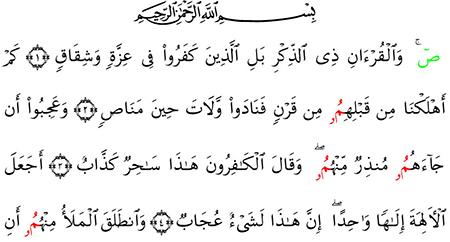 بِسْمِ اللَّهِ الرَّحْمَٰنِ الرَّحِيمِ
صٓۚ وَالْقُرْءَانِ ذِى الذِّكْرِ بَلِ الَّذِينَ كَفَرُواْ فِى عِزَّةٍ وَشِقَاقٍ ﴿١﴾ كَمْ
أَهْلَكْنَا مِن قَبْلِهِمُۥ مِن قَرْنٍ فَنَادَواْ وَلَاتَ حِينَ مَنَاصٍ ﴿٢﴾ وَعَجِبُواْ أَن
جَآءَهُمُۥ مُنذِرٌ مِّنْهُمُۥۖ وَقَالَ الْكَٰفِرُونَ هَٰذَا سَٰحِرٌ كَذَّابٌ ﴿٣﴾ أَجَعَلَ
الْاَلِهَةَ إِلَٰهًا وَٰحِدًاۖ إِنَّ هَٰذَا لَشَىْءٌ عُجَابٌ ﴿٤﴾ وَانطَلَقَ الْمَلَأُ مِنْهُمُۥ أَنِ